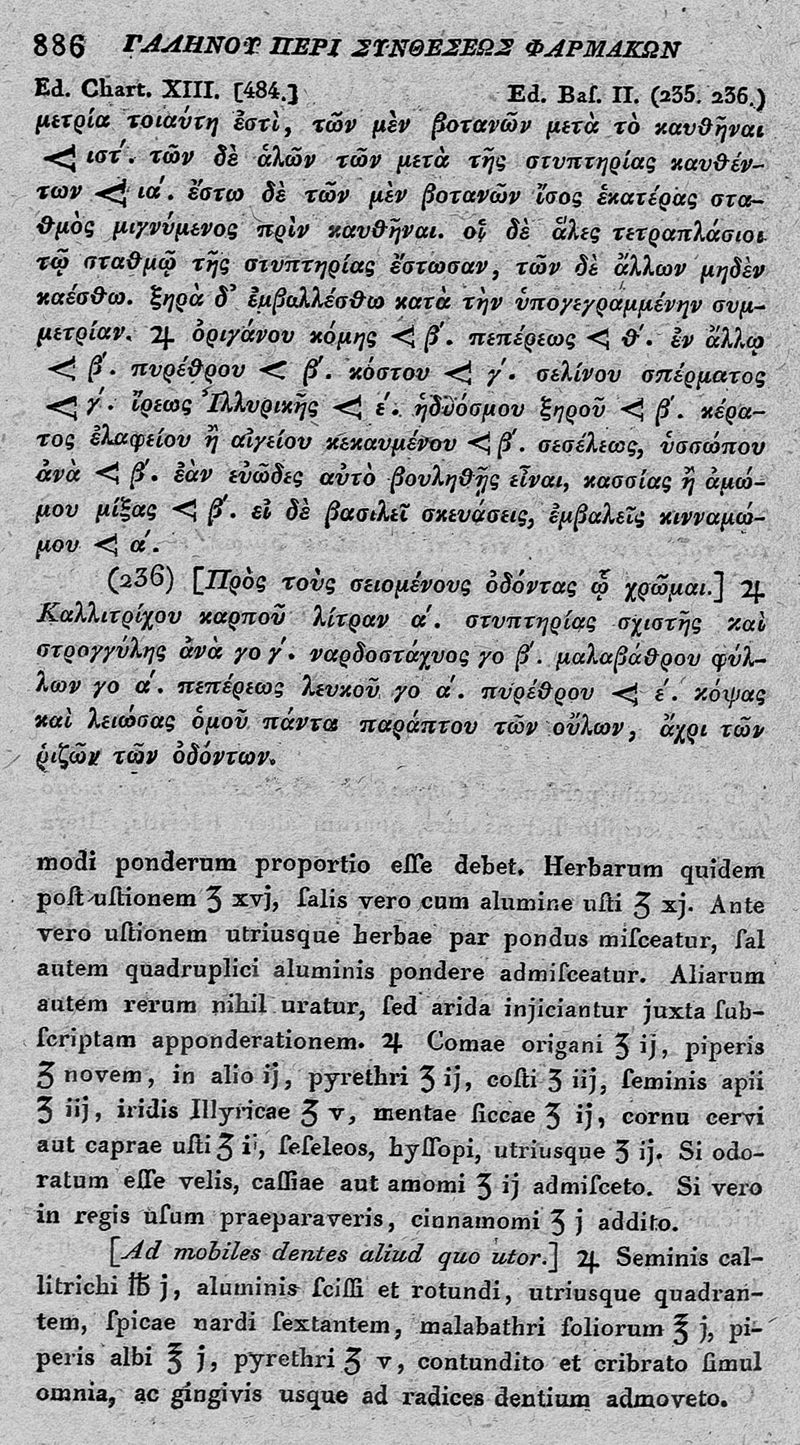 886 ΓΑΛΗΝΟΥ ΠΕΡΙ ΣΥΝΘΕΣΕΩΣ ΦΑΡΜΑΚΩΝ
Ed. Chart. XIII. [484.] Ed. Baſ. II. (235. 236.)
μετρία τοιαύτη ἐστὶ, τῶν μὲν βοτανῶν μετὰ τὸ καυθῆναι
⋖ ιστ΄. τῶν δὲ ἁλῶν τῶν μετὰ τῆς στυπτηρίας καυθέν-
των ⋖ ια΄. ἔστω δὲ τῶν μὲν βοτανῶν ἴσος ἑκατέρας στα-
θμὸς μιγνύμενος πρὶν καυθῆναι. οἱ δὲ ἅλες τετραπλάσιοι
τῷ σταθμῷ τῆς στυπτηρίας ἔστωσαν, τῶν δὲ ἄλλων μηδὲν
καέσθω. ξηρὰ δ᾽ ἐμβαλλέσθω κατὰ τὴν ὑπογεγραμμένην συμ-
μετρίαν. ♃ ὀριγάνου κόμης ⋖ β΄. πεπέρεως ⋖ θ΄. ἐν ἄλλῳ
⋖ β΄. πυρέθρου < β΄. κόστου ⋖ γ΄. σελίνου σπέρματος
⋖ γ΄. ἴρεως Ἰλλυρικῆς ⋖ ε΄. ἡδυόσμου ξηροῦ ⋖ β΄. κέρα-
τος ἐλαφείου ἢ αἰγείου κεκαυμένου ⋖ β΄. σεσέλεως, ὑσσώπου
ἀνὰ ⋖ β΄. ἐὰν εὐῶδες αὐτὸ βουληθῇς εἶναι, κασσίας ἢ ἀμώ-
μου μίξας ⋖ β΄. εἰ δὲ βασιλεῖ σκευάσεις, ἐμβαλεῖς κινναμώ-
μου ⋖ α΄.
(236) [Πρὸς τοὺς σειομένους ὀδόντας ᾧ χρῶμαι.] ♃
Καλλιτρίχου καρποῦ λίτραν α΄. στυπτηρίας σχιστῆς καὶ
στρογγύλης ἀνὰ γο γ΄. ναρδοστάχυος γο β΄. μαλαβάθρου φύλ-
λων γο α΄. πεπέρεως λευκοῦ γο α΄. πυρέθρου ⋖ ε΄. κόψας
καὶ λειώσας ὁμοῦ πάντα παράπτου τῶν οὔλων, ἄχρι τῶν
ῥιζῶν τῶν ὀδόντων.
modi ponderum proportio eſſe debet. Herbarum quidem
poſt uſtionem ʒ xvj, ſalis vero cum alumine uſti ʒ xj. Ante
vero uſtionem utriusque herbae par pondus miſceatur, ſal
autem quadruplici aluminis pondere admiſceatur. Aliarum
autem rerum nihil uratur, ſed arida injiciantur juxta ſub-
ſcriptam apponderationem. ♃ Comae origani ʒ ij, piperis
ʒ novem, in alio ij, pyrethri ʒ ij, coſti ʒ iij, ſeminis apii
ʒ iij, iridis Illyricae ʒ v, mentae ſiccae ʒ ij, cornu cervi
aut caprae uſti ʒ ij, ſeſeleos, hyſſopi, utriusque ʒ ij. Si odo-
ratum eſſe velis, caſſiae aut amomi ʒ ij admiſceto. Si vero
in regis uſum praeparaveris, cinnamomi ʒ j addito.
[Ad mobiles dentes aliud quo utor.] ♃ Seminis cal-
litrichi ℔ j, aluminis ſciſſi et rotundi, utriusque quadran-
tem, ſpicae nardi ſextantem, malabathri foliorum ℥ j, pi-
peris albi ℥ j, pyrethri ʒ v, contundito et cribrato ſimul
omnia, ac gingivis usque ad radices dentium admoveto.